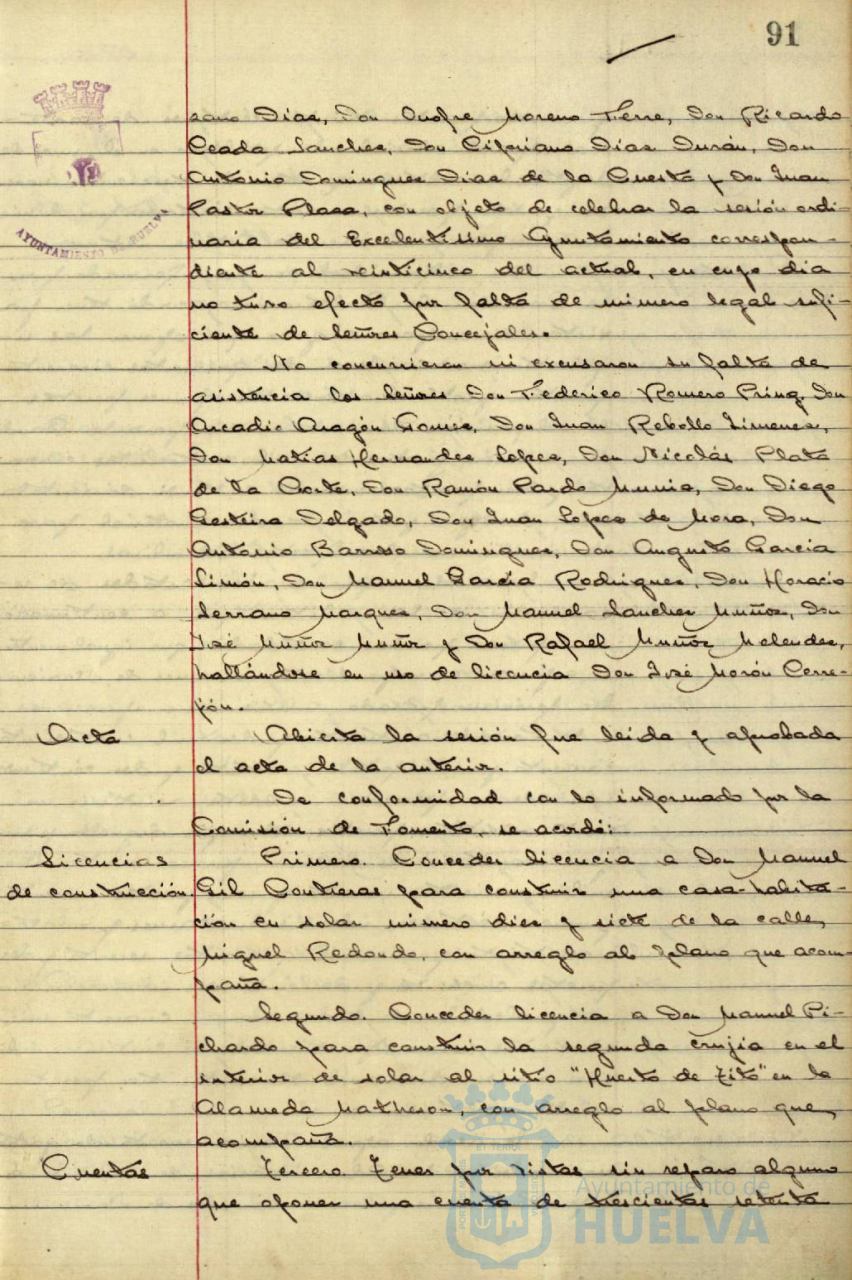 91
AYUNTAMIENTO DE HUELVA
sano Díaz, Don Onofre Moreno Terre, Don Ricardo
Ceada Sanchez, Don Cipriano Díaz Durán, Don
Antonio Dominguez Díaz de la Cuesta y Don Juan
Pastor Plaza, con objeto de celebrar la sesión ordi-
naria del Excelentísimo Ayuntamiento correspon-
diente al veinticinco del actual, en cuyo dia
no tuvo efecto por falta de número legal sufi-
ciente de Señores Concejales.
No concurrieron ni excusaron su falta de
asistencia los Señores Don Federico Romero Don
Arcadio Aragón Gomez, Don Juan Rebollo Jimenez,
Don Matías Hernandez Lopez, Don Nicolás Plata
de la Corte, Don Ramón Pardo Muniz, Don Diego
Gesteira Delgado, Don Juan Lopez de Mora, Don
Antonio Barroso Dominguez, Don Augusto Garcia
Simón, Don Manuel García Rodriguez, Don Horacio
Serrano Marquez, Don Manuel Sanchez Muñoz, Don
José Muñoz Muñoz y Don Rafael Muñoz Melendez,
hallándose en uso de licencia Don José Morón Corre-
jón.
Acta
Abierta la sesión fue leida y aprobada
el acta de la anterior.
De conformidad con lo informado por la
Comisión de Fomento, se acordó:
Licencias
de construcción.
Primero. Conceder licencia a Don Manuel
Gil Contreras para construir una casa-habita-
ción en solar número diez y siete de la calle
Miguel Redondo, con arreglo al plano que acom-
paña.
Segundo. Conceder licencia a Don Manuel Pi-
chardo para construir la segunda crujía en el
interior de solar al sitio "Huerto de Tito" en la
Alameda Matheson, con arreglo al plano que
acompaña.
Cuentas
Tercero. Tener por vistas sin reparo alguno
que oponer una cuenta de trescientas setenta
Ayuntamiento de
HUELVA